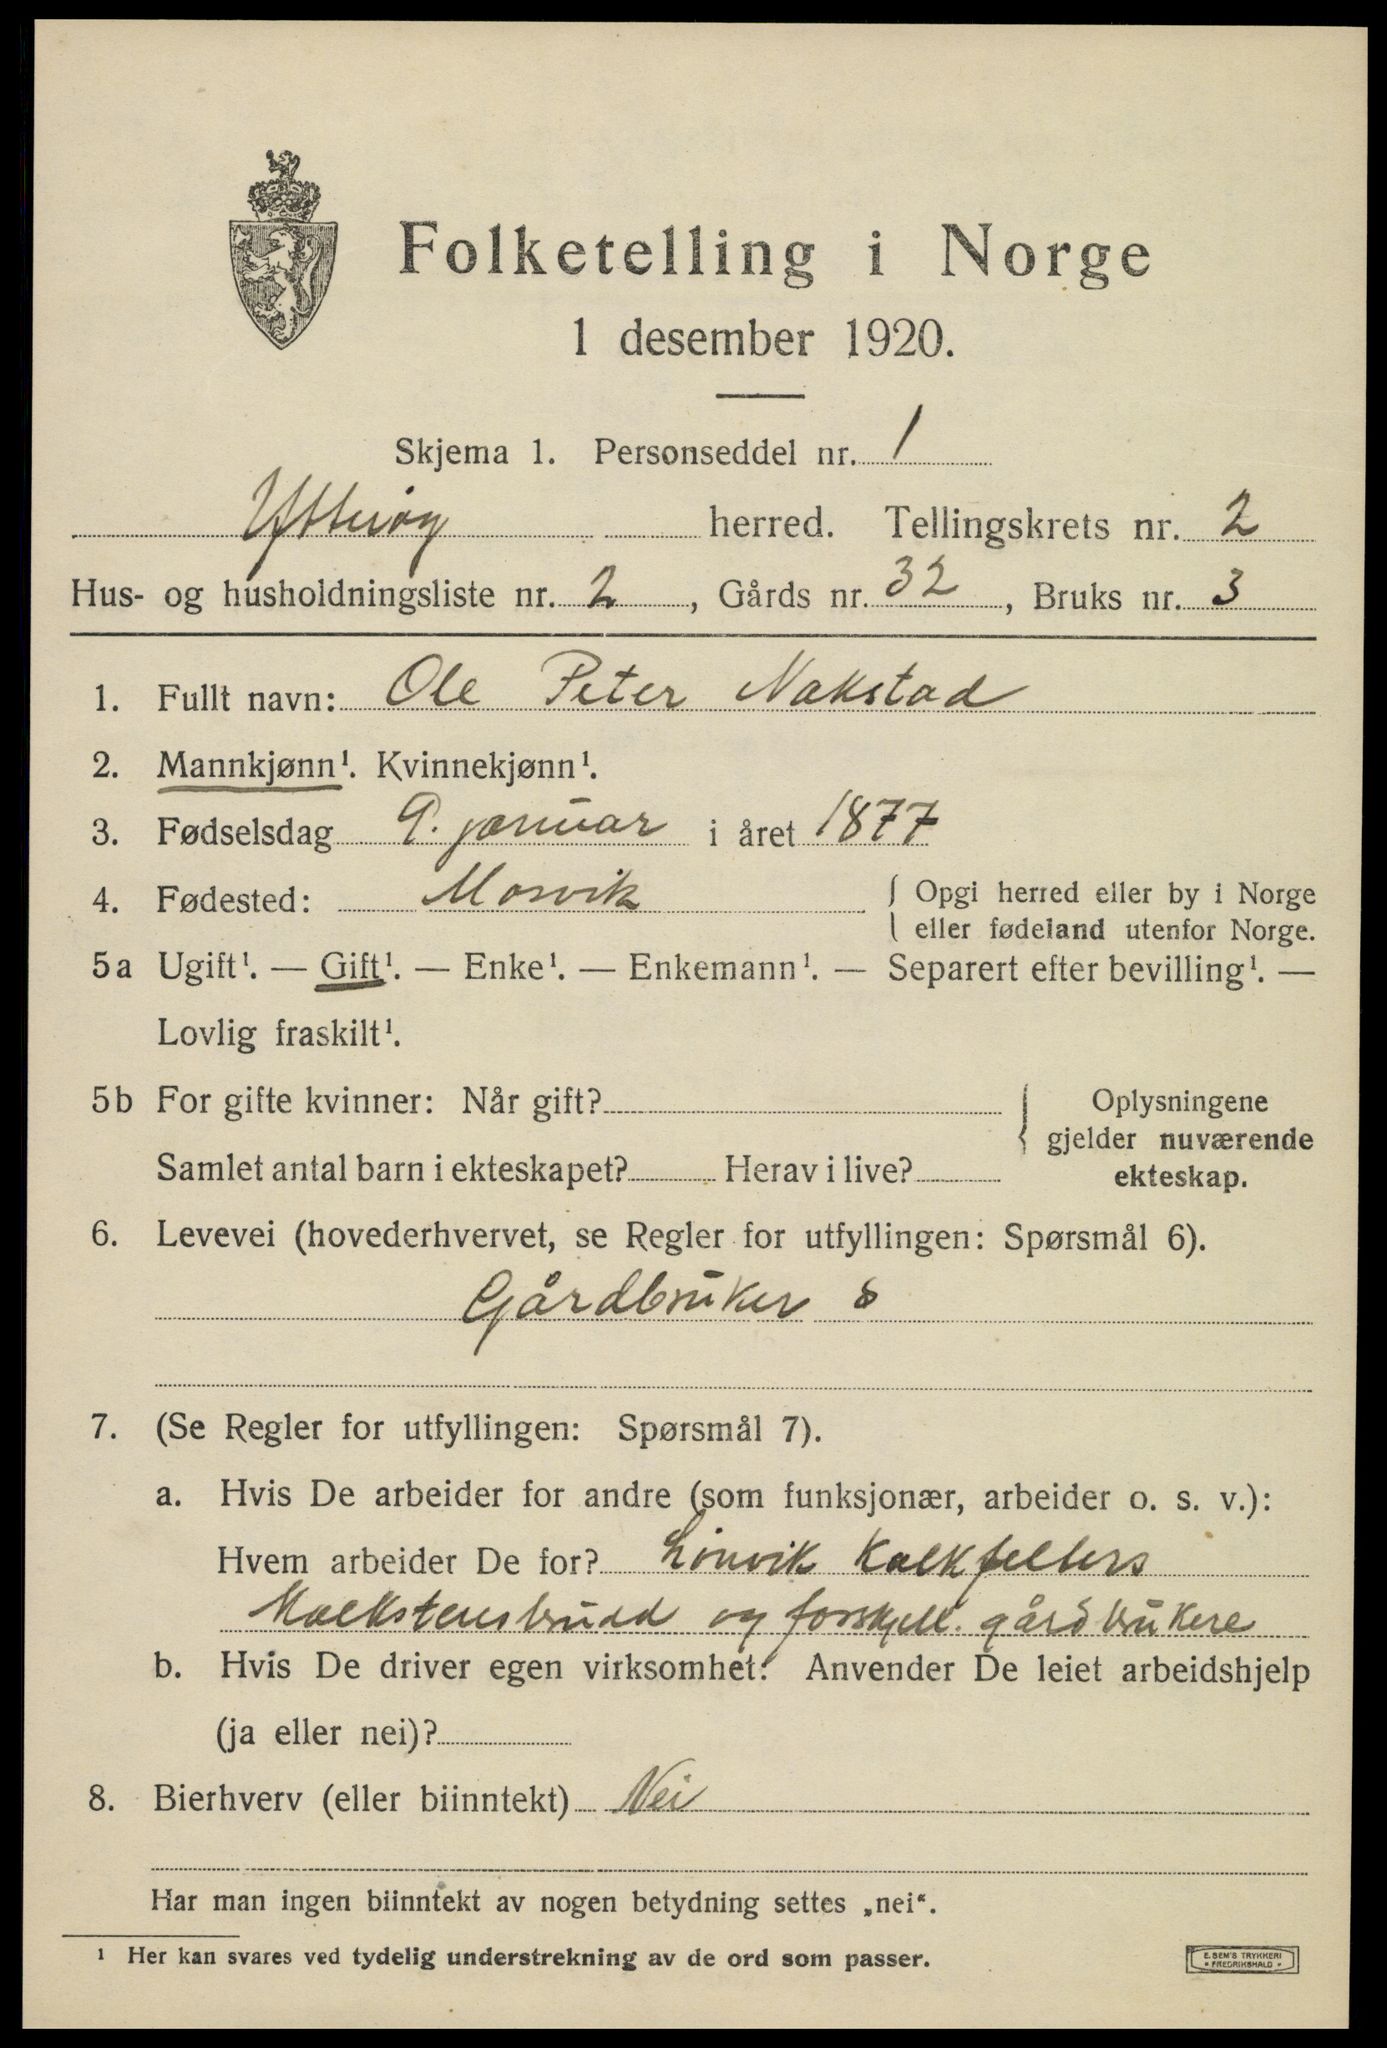 Folketelling i Norge
1 desember 1920.
Skjema 1. Personseddel nr. 1
Ytterøy herred. Tellingskrets nr. 2
Hus- og husholdningsliste nr. 2, Gårds nr. 32, Bruks nr. 3
1. Fullt navn: Ole Peter Nakstad
2. Mannkjønn¹. Kvinnekjønn¹.
3. Fødselsdag 9. januar i året 1877
4. Fødested: Mosvik { Opgi herred eller by i Norge
eller fødeland utenfor Norge.
5a Ugift¹. — Gift¹. — Enke¹. — Enkemann¹. — Separert efter bevilling¹. —
Lovlig fraskilt¹.
5b For gifte kvinner: Når gift? { Oplysningene
gjelder nuværende
Samlet antal barn i ekteskapet? Herav i live? ekteskap.
6. Levevei (hovederhvervet, se Regler for utfyllingen: Spørsmål 6).
Gårdbruker s
7. (Se Regler for utfyllingen: Spørsmål 7).
a. Hvis De arbeider for andre (som funksjonær, arbeider o. s. v.):
Hvem arbeider De for? Kalkfelters
og forskjell. gårdbrukere
b. Hvis De driver egen virksomhet: Anvender De leiet arbeidshjelp
(ja eller nei)?
8. Bierhverv (eller biinntekt) Nei
Har man ingen biinntekt av nogen betydning settes „nei“.
¹ Her kan svares ved tydelig understrekning av de ord som passer.
E. SEM'S TRYKKERI
• FREDRIKSHALD •